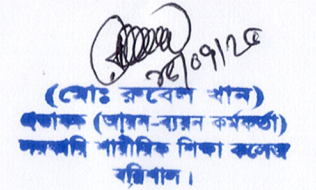 ২৮/০৭/২৫
(মোঃ রুবেল খান)
প্রভাষক (আয়ন-ব্যয়ন কর্মকর্তা)
সরকারি শারীরিক শিক্ষা কলেজ
বরিশাল।